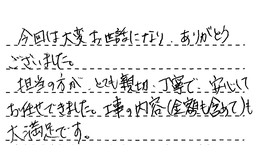 今回は大変お世話になり ありがとう
ございました。
担当の方が とても親切、丁寧で 安心して
お任せできました。工事の内容(金額も含めて)も
大満足です。